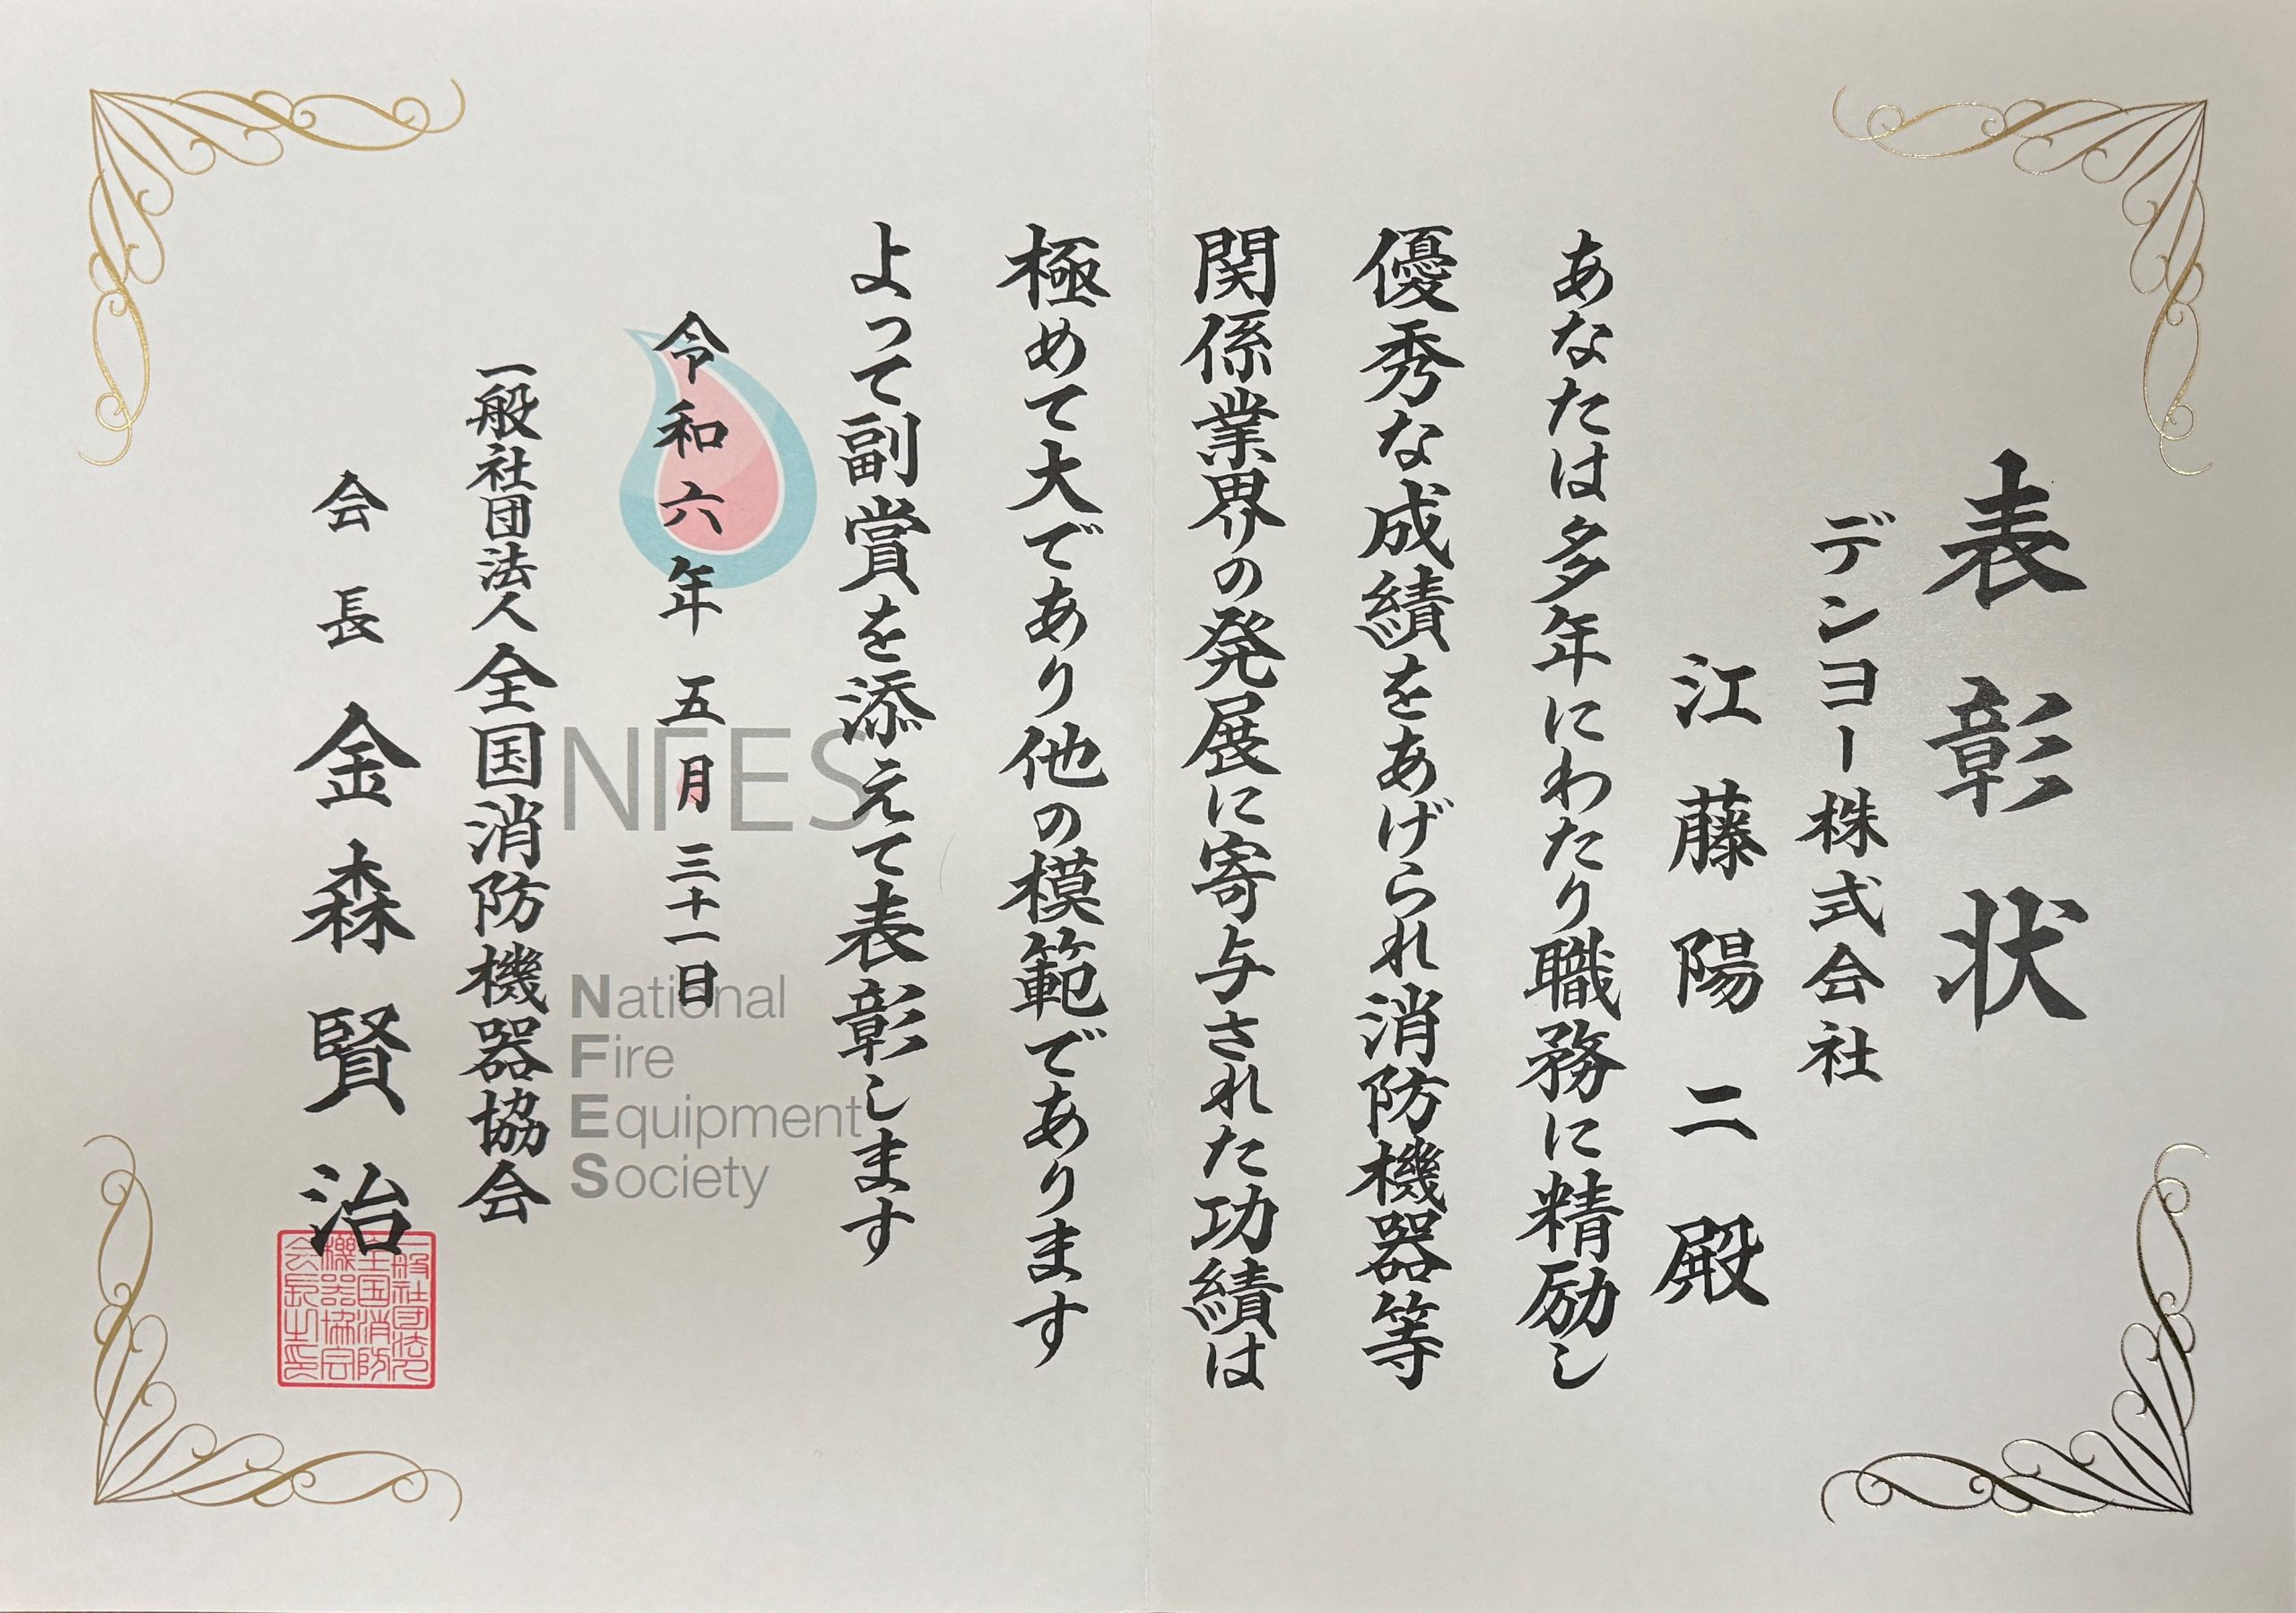 表彰状
デンヨー株式会社
江藤陽二殿
あなたは多年にわたり職務に精励し
優秀な成績をあげられ消防機器等
関係業界の発展に寄与された功績は
極めて大であり他の模範であります
よって副賞を添えて表彰します
令和六年五月三十一日
一般社団法人全国消防機器協会
会長金森賢治
NFES
National
Fire
Equipment
Society
一般社団法人
全国消防
機器協会
会長之印